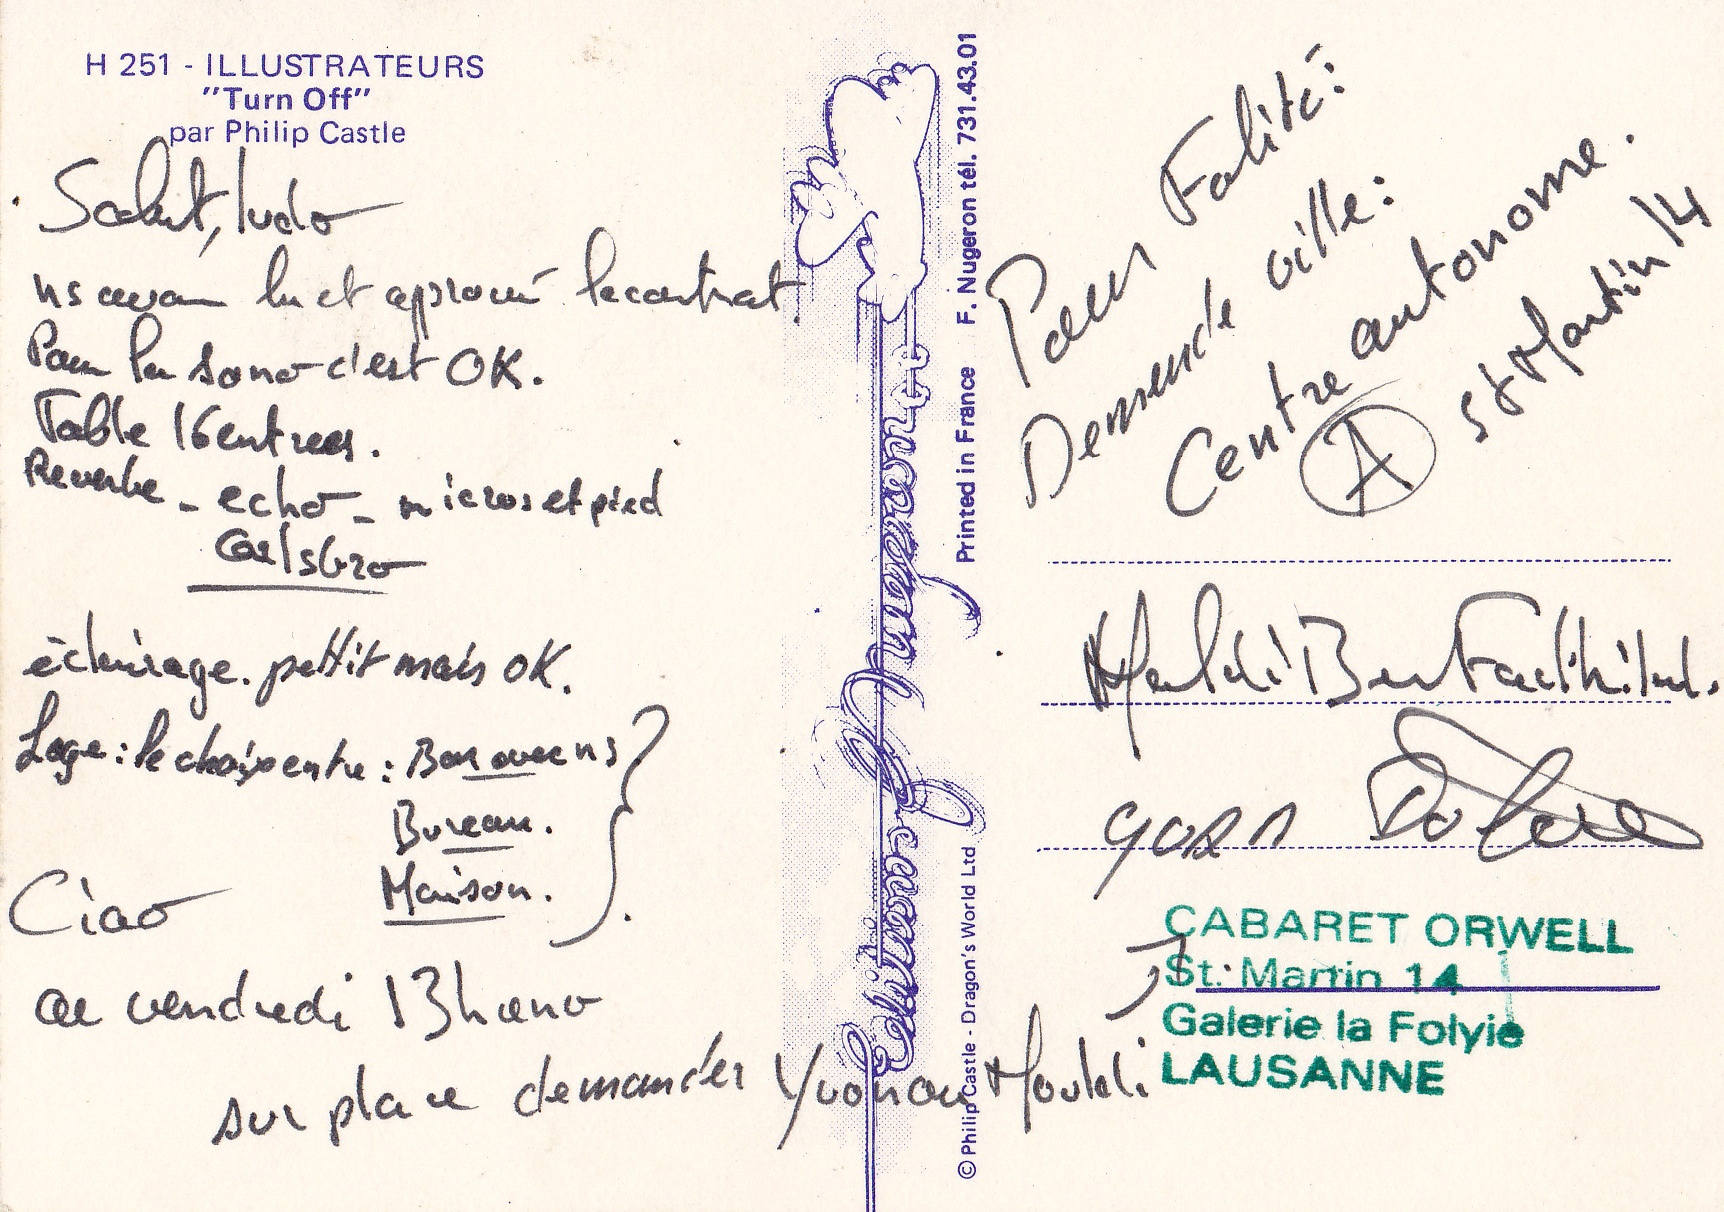 H 251 - ILLUSTRATEURS
"Turn Off"
par Philip Castle
Salut, ludo
ns avon lu et approuvé le contrat.
Pour la sono c'est OK.
Table 16 entrees.
Reverbe - echo - micros et pied
Carlsbro
éclairage. pettit mais OK.
Loge: le choix entre: Bar avec ns
Bureau.
Maison.
Ciao
ce vendredi 13h
sur place demander Yvonou
F. Nugeron tél. 731.43.01
Printed in France
© Philip Castle - Dragon's World Ltd
Pour
Demende ville:
Centre autonome.
A St Martin 14
CABARET ORWELL
St. Martin 14
Galerie la Folyie
LAUSANNE